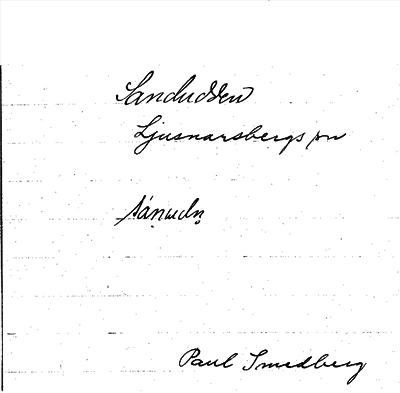 Sandudden
Ljusnarsbergs sn
sánudṇ
Paul Smedberg